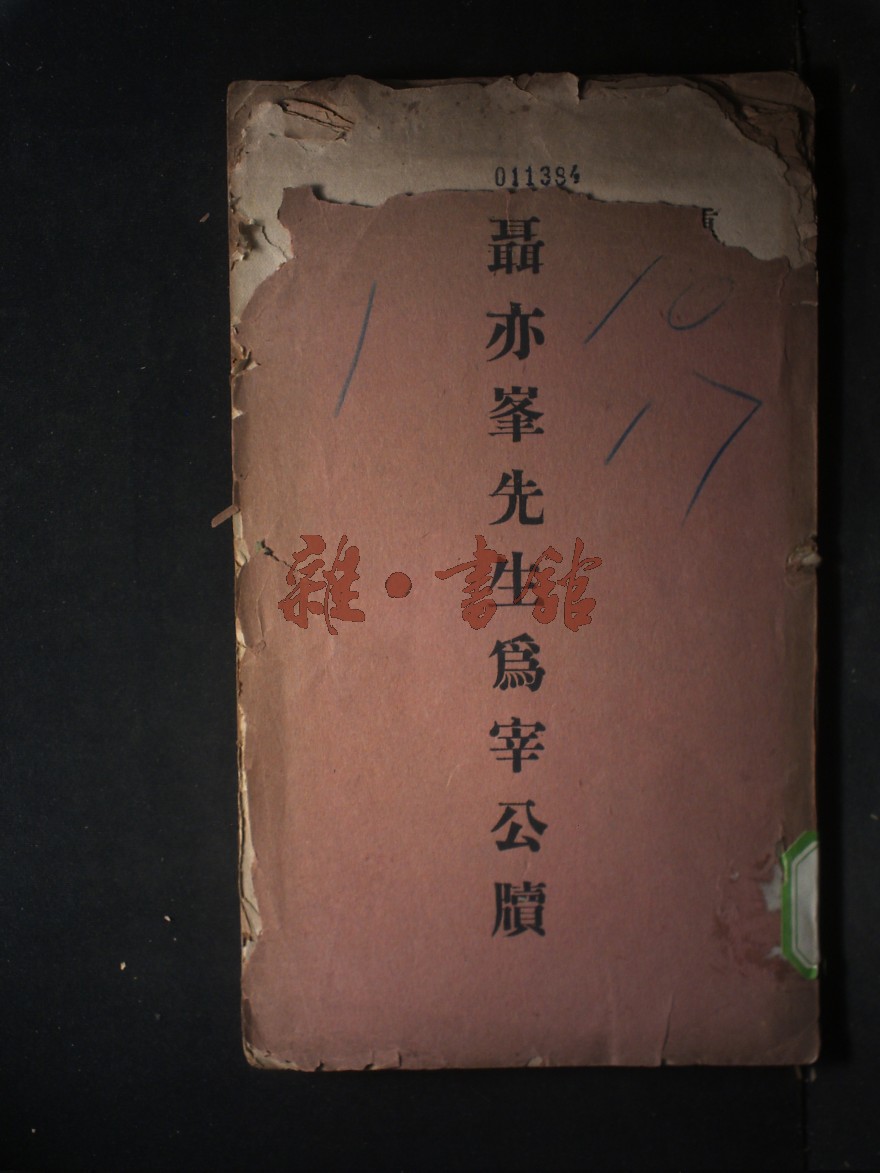 011384
聶亦峯先生為宰公牘
10
17
1
雜·書館